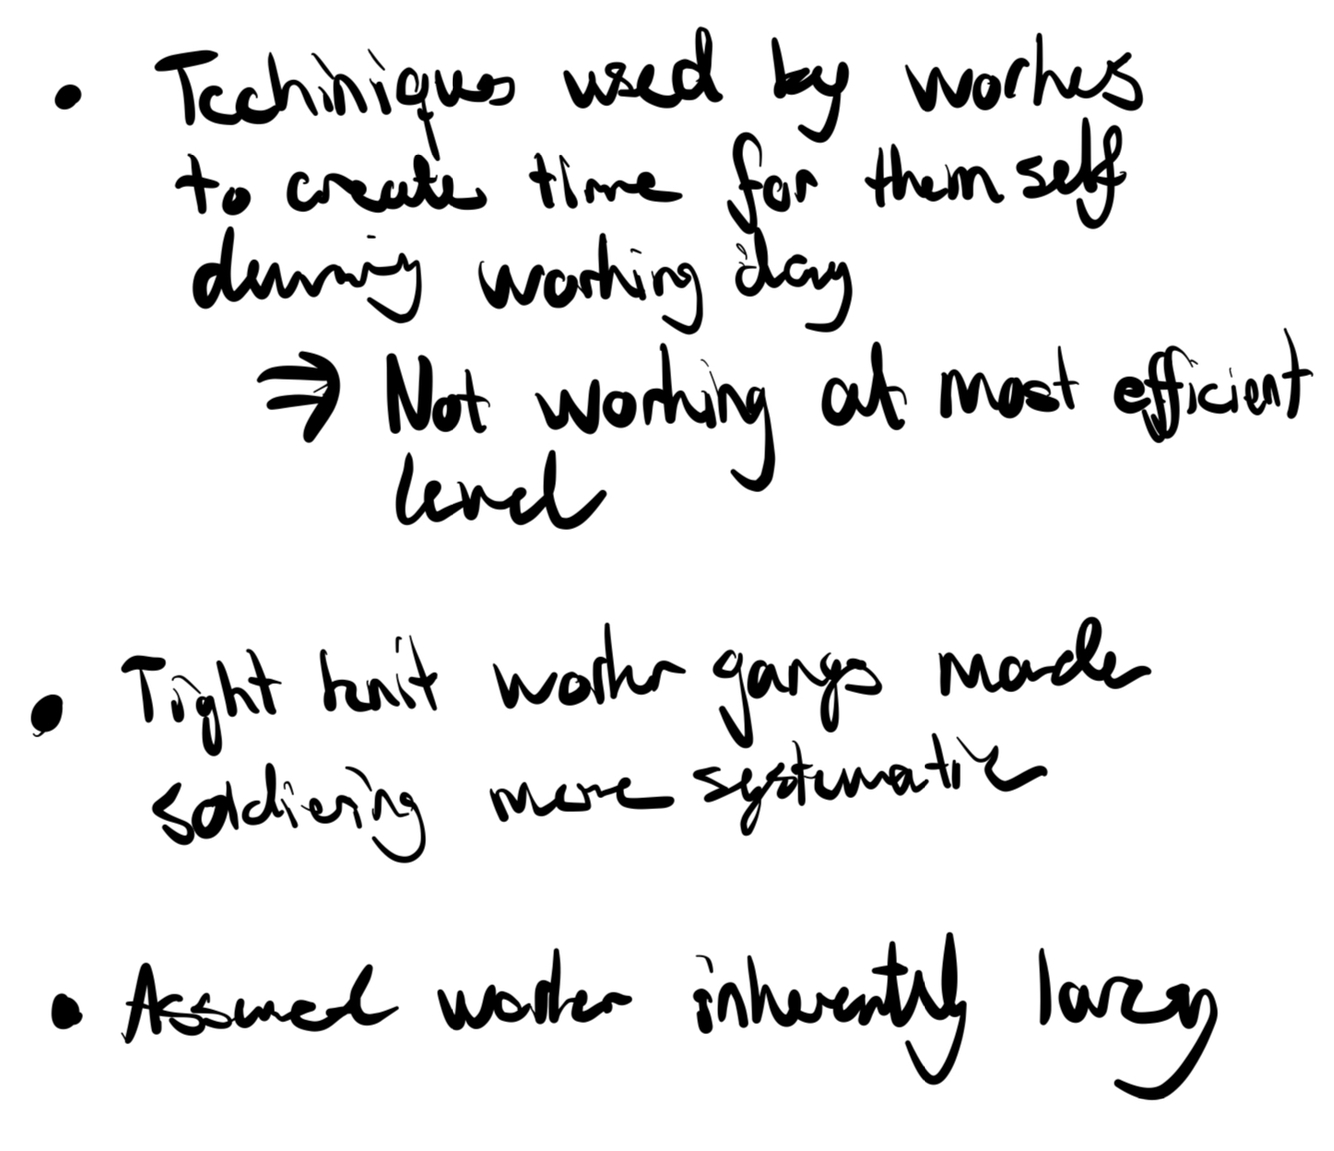 • Techniques used by workers
to create time for themself
during working day
⇒ Not working at most efficient
level
• Tight knit worker gangs made
soldiering more systematic
• Assumed worker inherently lazy